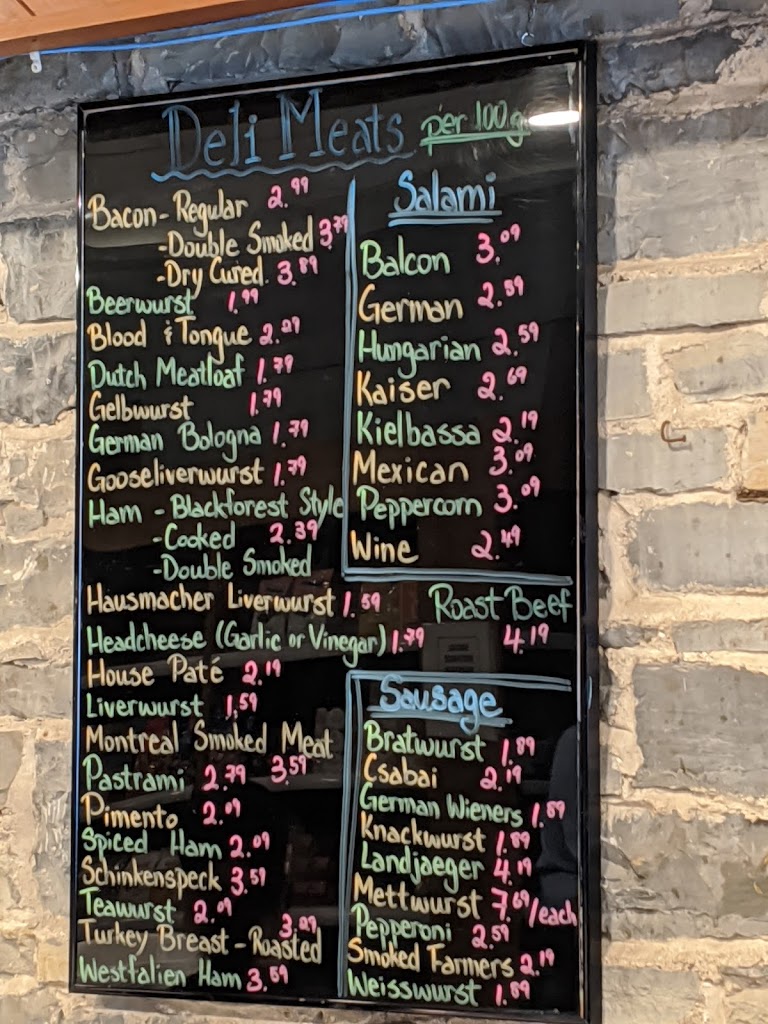 Deli Meats per 100g
Bacon - Regular 2.99
- Double Smoked 3.79
- Dry Cured 3.89
Beerwurst 1.99
Blood & Tongue 2.29
Dutch Meatloaf 1.79
Gelbwurst 1.79
German Bologna 1.79
Gooseliverwurst 1.79
Ham - Blackforest Style
- Cooked 2.39
- Double Smoked
Hausmacher Liverwurst 1.59
Headcheese (Garlic or Vinegar) 1.79
House Paté 2.19
Liverwurst 1.59
Montreal Smoked Meat
3.59
Pastrami 2.79
Pimento 2.09
Spiced Ham 2.09
Schinkenspeck 3.59
Teawurst 2.09
3.29
Turkey Breast - Roasted
Westfalien Ham 3.59
Salami
Balcon 3.09
German 2.59
Hungarian 2.59
Kaiser 2.69
Kielbassa 2.19
Mexican 3.09
Peppercorn 3.09
Wine 2.49
Roast Beef
4.19
Sausage
Bratwurst 1.89
Csabai 2.19
German Wieners 1.89
Knackwurst 1.89
Landjaeger 4.19
Mettwurst 7.69/each
Pepperoni 2.59
Smoked Farmers 2.19
Weisswurst 1.89